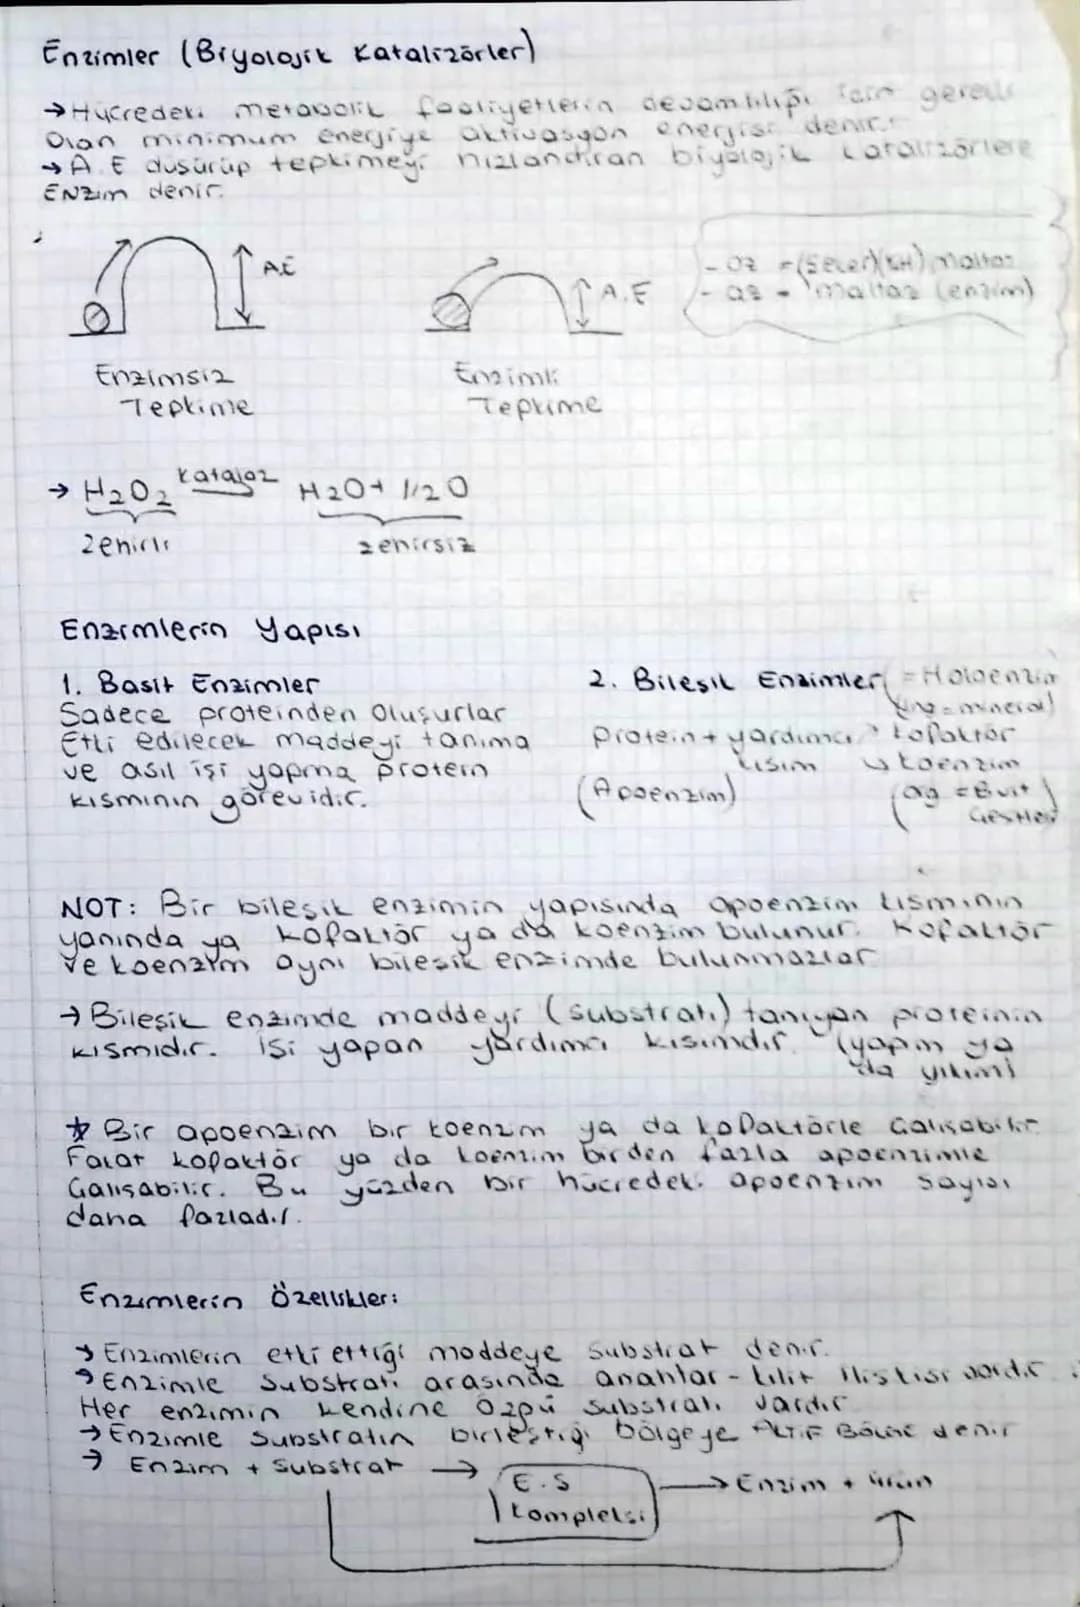 Enzimler (Biyolojik Katalizörler)
→ Hücredeki metabolik faaliyetlerin devamlılığı için gerekli
olan minimum enerjiye aktivasyon enerjisi denir.
→ A.E düşürüp tepkimeyi hızlandıran biyolojik katalizörlere
ENZim denir.
A.E
A.E
- oz = (Şeker)(KH) maltoz
- az = maltaz (enzim)
Enzimsiz
Tepkime
Enzimli
Tepkime
→ H2O2 Katalaz H2O + 1/2 O
Zehirli
zehirsiz
Enzimlerin Yapısı
1. Basit Enzimler
Sadece proteinden oluşurlar
Etki edilecek maddeyi tanıma
ve asıl işi yapma protein
kısmının görevidir.
2. Bileşik Enzimler = Holoenzim
(ing = mineral)
protein + yardımcı kofaktör
kısım ↳ koenzim
(Apoenzim)
(og = B vit
NOT: Bir bileşik enzimin yapısında apoenzim kısmının
yanında ya kofaktör ya da koenzim bulunur. Kofaktör
ve koenzim aynı bileşik enzimde bulunmazlar
→ Bileşik enzimde maddeyi (substratı) tanıyan proteinin
kısmıdır. İşi yapan yardımcı kısımdır. (yapım ya
da yıkım)
☆ Bir apoenzim bir koenzim ya da kofaktörle Çalışabilir
Fakat kofaktör ya da koenzim birden fazla apoenzimle
Çalışabilir. Bu yüzden bir hücredeki apoenzim sayısı
daha fazladır.
Enzimlerin Özellikleri
→ Enzimlerin etki ettiği maddeye substrat denir.
→ Enzimle Substratı arasında anahtar - kilit ilişkisi vardır.
Her enzimin kendine özgü substratı vardır
→ Enzimle Substratın birleştiği bölgeye AKTİF BÖLGE denir
→ Enzim + Substrat → E.S → Enzim + ürün
Kompleksi